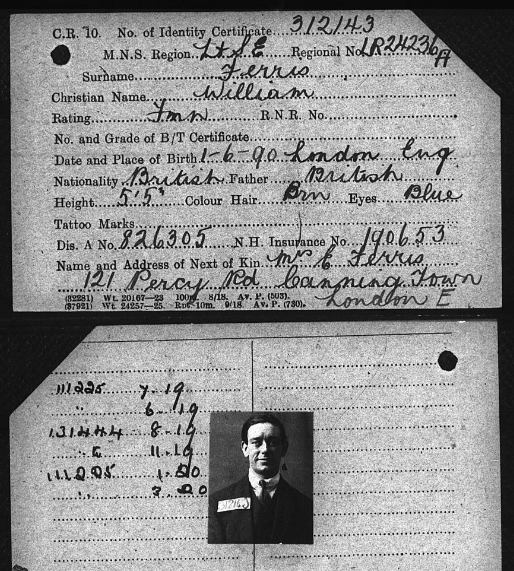 C.R. 10. No. of Identity Certificate 312143
M.N.S. Region Lt S E Regional No. LR24236A
Surname Ferris
Christian Name William
Rating Fmn R.N.R. No.
No. and Grade of B/T Certificate
Date and Place of Birth 1-6-90 London Eng
Nationality British Father British
Height 5'5" Colour Hair Brn Eyes Blue
Tattoo Marks
Dis. A No. 826305 N.H. Insurance No. 190653
Name and Address of Next of Kin Mrs E Ferris
121 Percy Rd Canning Town
London E
(82281) Wt. 20167—23 100m. 8/18. Av. P. (503).
(87921) Wt. 24257—25. Rpt. 10m. 9/18 Av. P. (730).
111225 7-19
" 6-19
131444 8-19
" 11-19
111225 1-20
" 3-20